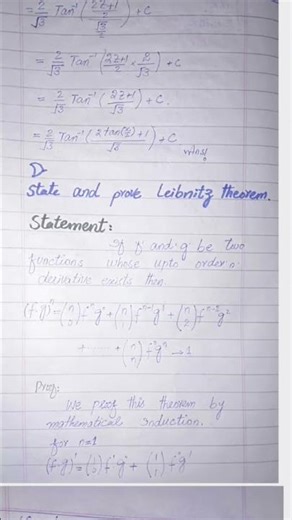 = 2/√3 Tan⁻¹ ( (2z+1)/2 / √3/2 ) + C
= 2/√3 Tan⁻¹ ( 2z+1/2 × 2/√3 ) + C
= 2/√3 Tan⁻¹ ( 2z+1/√3 ) + C.
= 2/√3 Tan⁻¹ ( 2 tan(x/2) + 1/√3 ) + C
State and prove Leibnitz theorem.
Statement:
If f and g be two
functions whose upto order n
derivative exists then
(f·g)ⁿ = (n 0) fⁿ g⁰ + (n 1) fⁿ⁻¹ g¹ + (n 2) fⁿ⁻² g²
+ ........ + (n n) f⁰ gⁿ → 1
Proof:
We proof this theorem by
mathematical induction.
for n=1
(f·g)¹ = (1 0) f¹ g⁰ + (1 1) f⁰ g¹